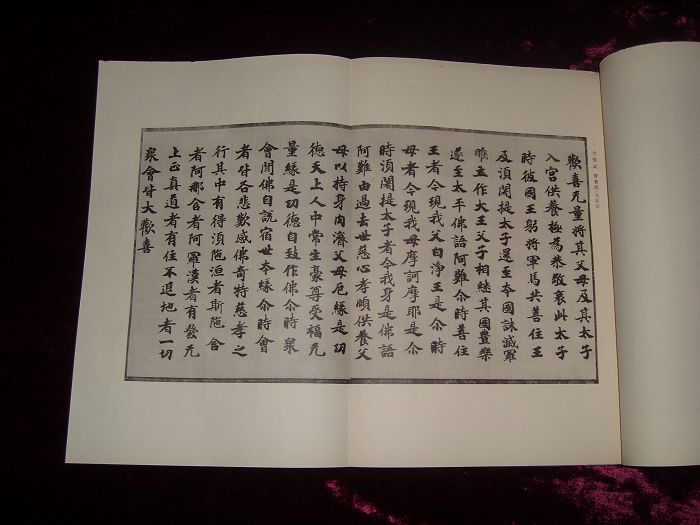 大聖武 賢愚経
歡喜无量將其父母及其太子
入宮供養極為恭敬哀此太子
時彼國王躬將軍馬共善住王
及湏闍提太子還至本國誅滅羅
睺立作大王父子相継其國豊樂
遂至太平佛語阿難尒時善住
王者今現我父白浄王是尒時
母者今現我母摩訶摩耶是尒
時湏闍提太子者今我身是佛語
阿難由過去世慈心孝順供養父
母以持身肉濟父母厄縁是功
德天上人中常生豪尊受福无
量縁是功德自致作佛尒時衆
會聞佛自説宿世本縁尒時會
者皆各悲歎感佛奇特慈孝之
行其中有得湏陁洹者斯陁含
者阿那含者阿羅漢者有發无
上正真道者有住不退地者一切
衆會皆大歡喜